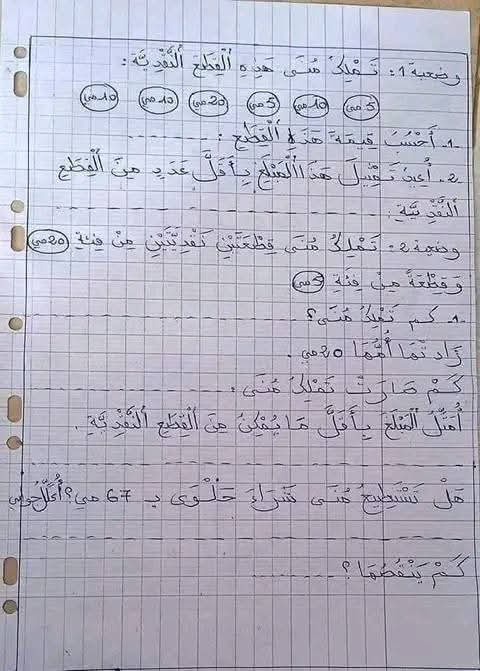 وضعية 1: تَمْلِكُ مُنَى هَذِهِ اَلْقِطَعَ اَلنَّقْدِيَّةَ:
5مي 10مي 5مي 20مي 10مي 10مي
1. أَحْسُبُ قِيمَةَ هَذِهِ اَلْقِطَعِ:
2. أُعِيدُ تَمْثِيلَ هَذَا اَلْمَبْلَغِ بِأَقَلِّ عَدَدٍ مِنَ اَلْقِطَعِ
اَلنَّقْدِيَّةِ.
وضعية 2: تَمْلِكُ مُنَى قِطْعَتَيْنِ نَقْدِيَّتَيْنِ مِنْ فِئَةِ 20مي
وَقِطْعَةً مِنْ فِئَةِ 5مي
1. كم تَمْلِكُ مُنَى؟
زَادَتْهَا أُمُّهَا 20مي.
كَمْ صَارَتْ تَمْلِكُ مُنَى:
أُمَثِّلُ اَلْمَبْلَغَ بِأَقَلَّ مَا يُمْكِنُ مِنَ اَلْقِطَعِ اَلنَّقْدِيَّةِ.
هَلْ تَسْتَطِيعُ مُنَى شَرَاءَ حَلْوَى بِ 67 مي؟ أُعَلِّلُ جوابي
كَمْ يَنْقُصُهَا؟